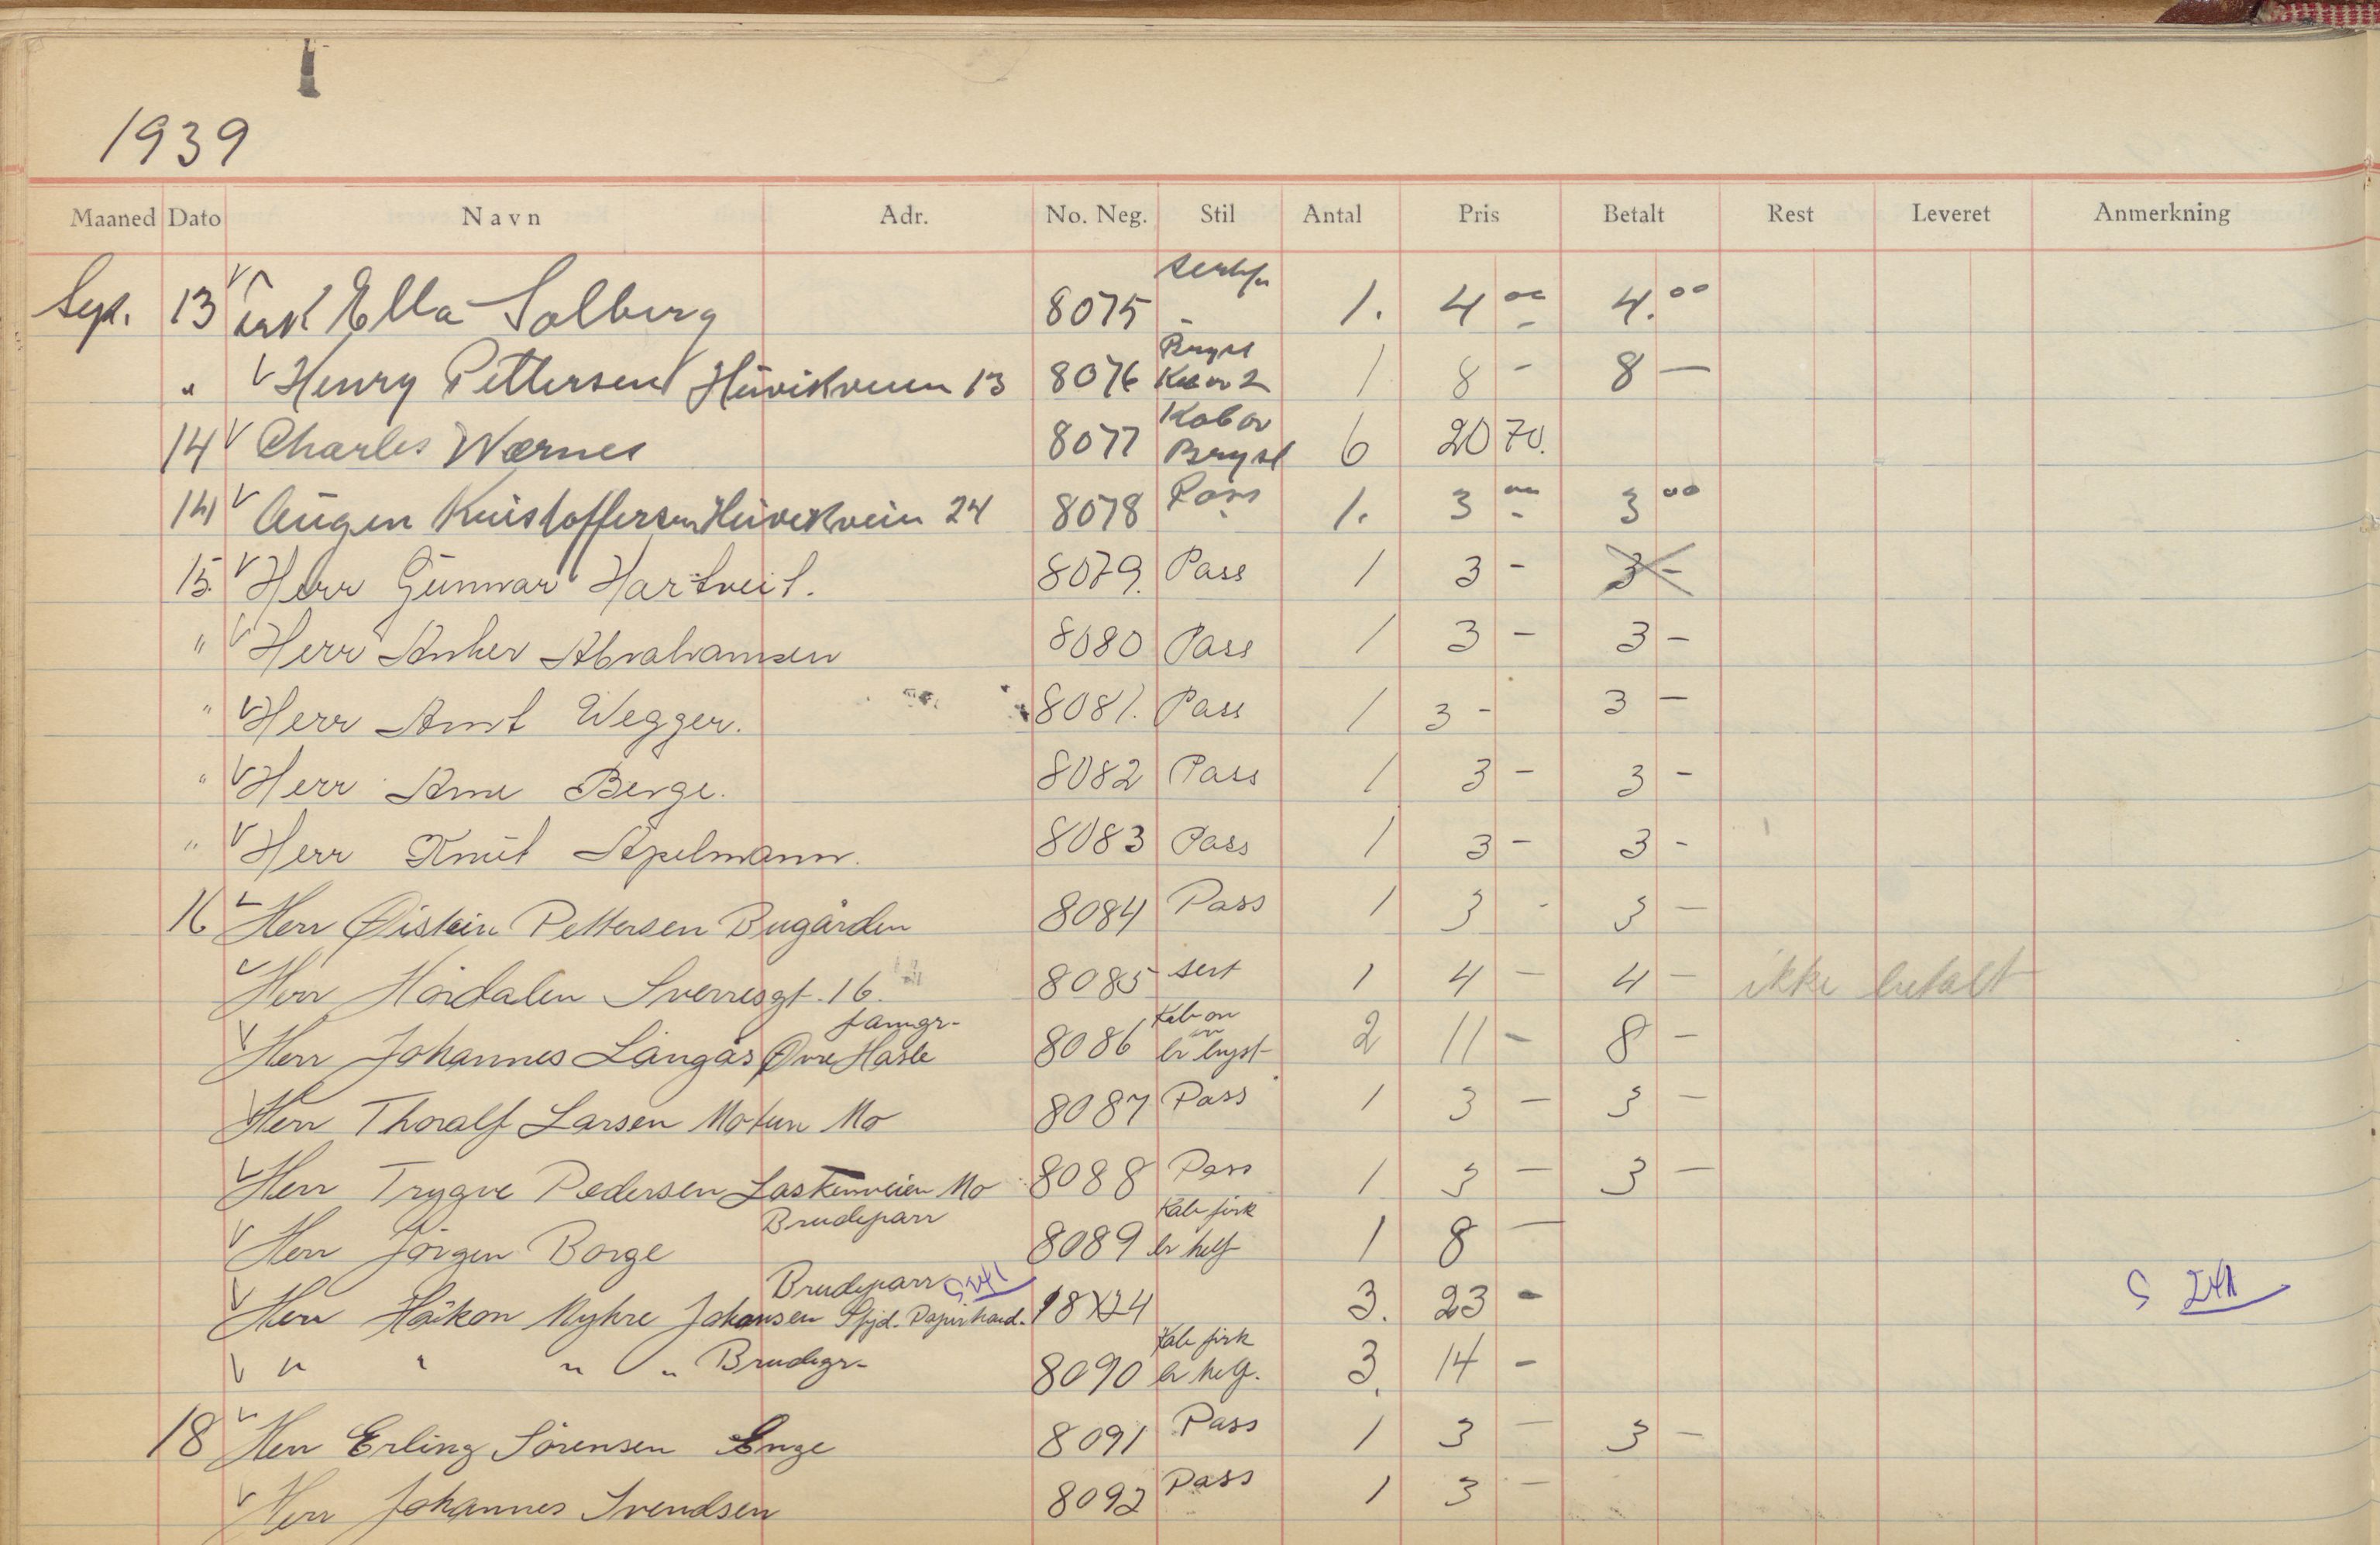 1939
Maaned Dato Navn Adr. No. Neg. Stil Antal Pris Betalt Rest Leveret Anmerkning
Sept. 13 Frk Ella Solberg 8075 1. 4 00 4.00
" Henry Pettersen 13 8076 Bryst 1 8 - 8 -
14 Charles Wærnes 8077 Kab ov Bryst 6 20 70.
14 Augen Kristoffersen 24 8078 Pass 1. 3 00 3 00
15. Herr Gunnar Hartveit. 8079. Pass 1 3 - 3 -
" Herr Anker Abrahamsen 8080 Pass 1 3 - 3 -
" Herr Arnt Wegger. 8081. Pass 1 3 - 3 -
" Herr Arne Berge. 8082 Pass 1 3 - 3 -
" Herr Knut Apelmann. 8083 Pass 1 3 - 3 -
16 Herr Øistein Pettersen Bugården 8084 Pass 1 3 - 3 -
Herr Hørdalen Sverresgt. 16. 8085 sert 1 4 - 4 - ikke betalt
Herr Johannes Langås Øvre Hasle 8086 Kab ov br bryst 2 11 - 8 -
Herr Thoralf Larsen Motun Mo 8087 Pass 1 3 - 3 -
Herr Trygve Pedersen Laskenveien Mo 8088 Pass 1 3 - 3 -
Brudeparr
Herr Jörgen Borge 8089 Kab firk br helf 1 8 -
Brudeparr
Herr Håkon Myhre Johansen Sfjd. Papirhand. 18X24 3. 23 -
" " " " Brudegr. 8090 Kab firk br helf. 3. 14 -
18 Herr Erling Sörensen Enge 8091 Pass 1 3 - 3 -
Herr Johannes Svendsen 8092 Pass 1 3 -